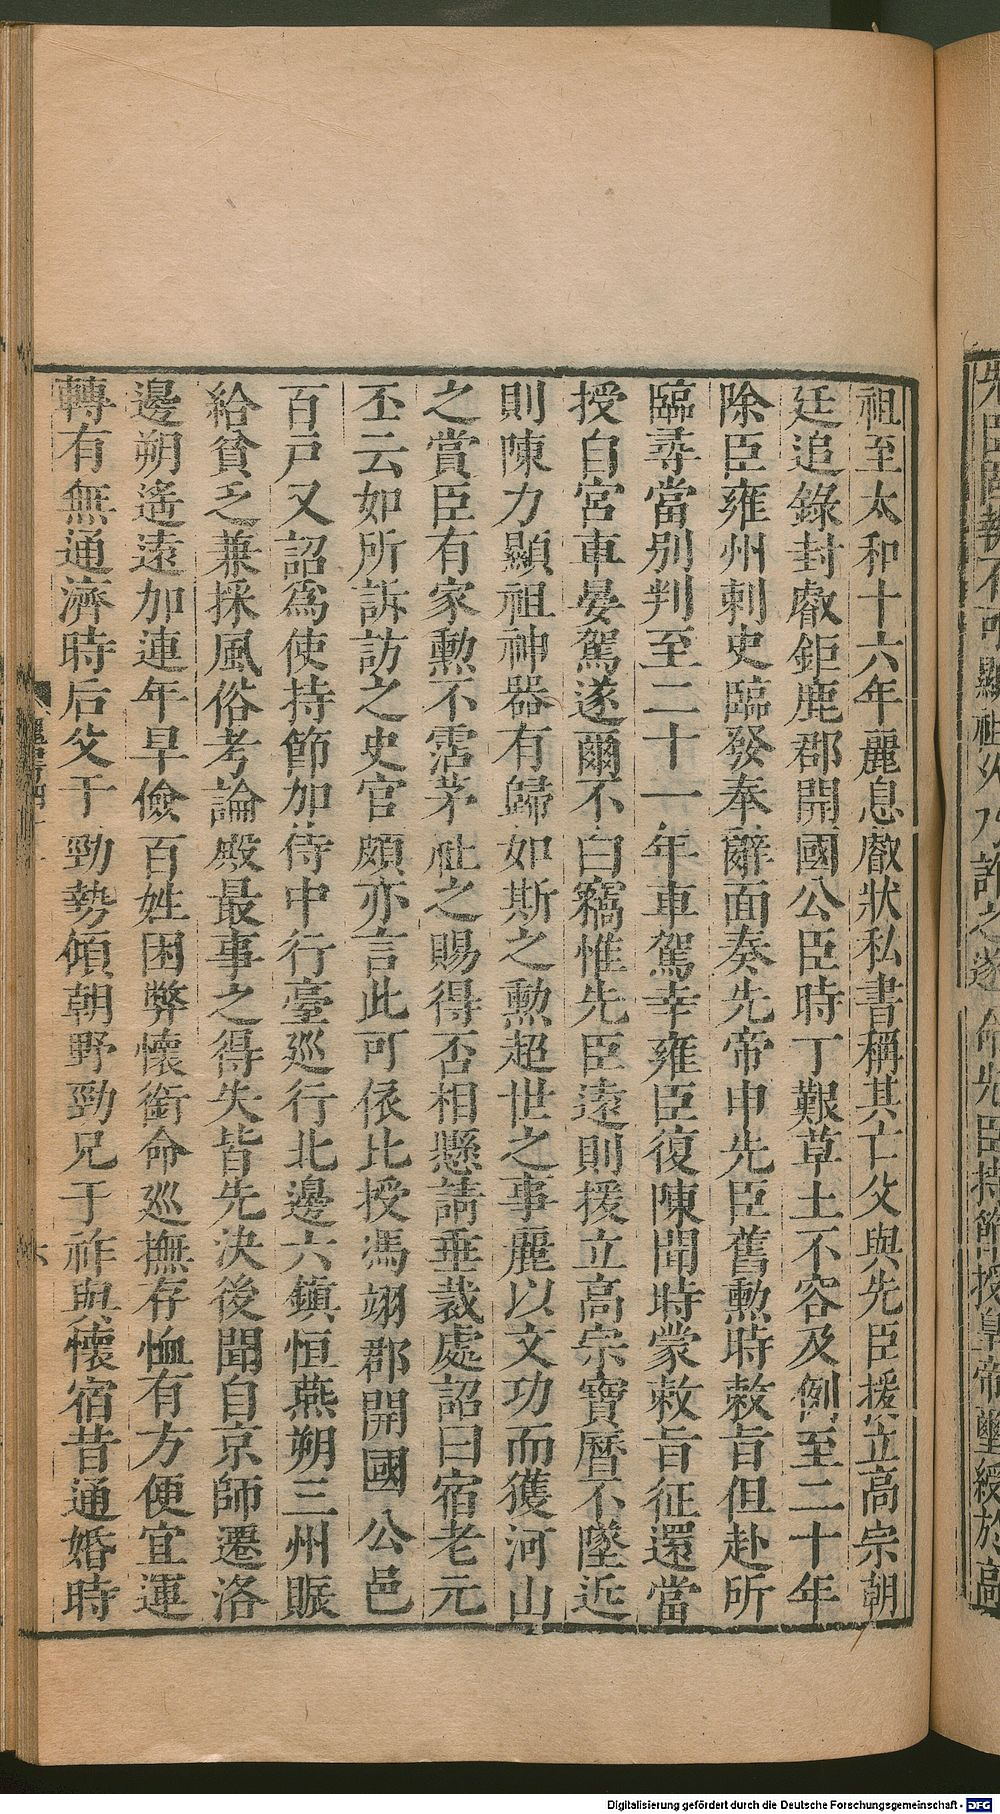 祖至太和十六年麗息叡狀私書稱其亡父與先臣援立高宗朝
廷追錄封叡鉅鹿郡開國公臣時丁艱草土不容及例至二十年
除臣雍州刺史臨發奉辭面奏先帝申先臣舊勲時敕旨但赴所
臨尋當別判至二十一年車駕幸雍臣復陳聞時蒙敕旨征還當
授自宮車晏駕遂爾不白竊惟先臣遠則援立高宗寶曆不墜近
則陳力顯祖神器有歸如斯之勲超世之事麗以文功而獲河山
之賞臣有家勲不霑茅社之賜得否相懸請垂裁處詔曰宿老元
丕云如所訴訪之史官頗亦言此可依比授馮翊郡開國公邑
百戸又詔爲使持節加侍中行臺巡行北邊六鎮恒燕朔三州賑
給貧乏兼採風俗考論殿最事之得失皆先決後聞自京師遷洛
邊朔遙遠加連年旱儉百姓困弊懷銜命巡撫存恤有方便宜運
轉有無通濟時后父于勁勢傾朝野勁兄于祚與懷宿昔通婚時
六
Digitalisierung gefördert durch die Deutsche Forschungsgemeinschaft - DFG